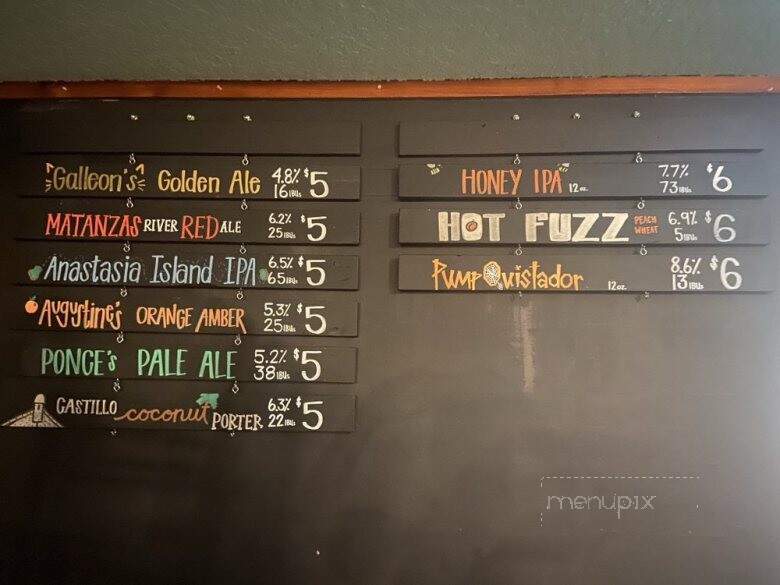 Galleon's Golden Ale 4.8% $5
16 IBUs
MATANZAS RIVER RED ALE 6.2% $5
25 IBUs
Anastasia Island IPA 6.5% $5
65 IBUs
Augustine's ORANGE AMBER 5.3% $5
25 IBUs
PONCE'S PALE ALE 5.2% $5
38 IBUs
CASTILLO coconut PORTER 6.3% $5
22 IBUs
HONEY IPA 12 oz. 7.7% $6
73 IBUs
HOT FUZZ PEACH WHEAT 6.9% $6
5 IBUs
Pumpquistador 12 oz. 8.6% $6
13 IBUs
menupix